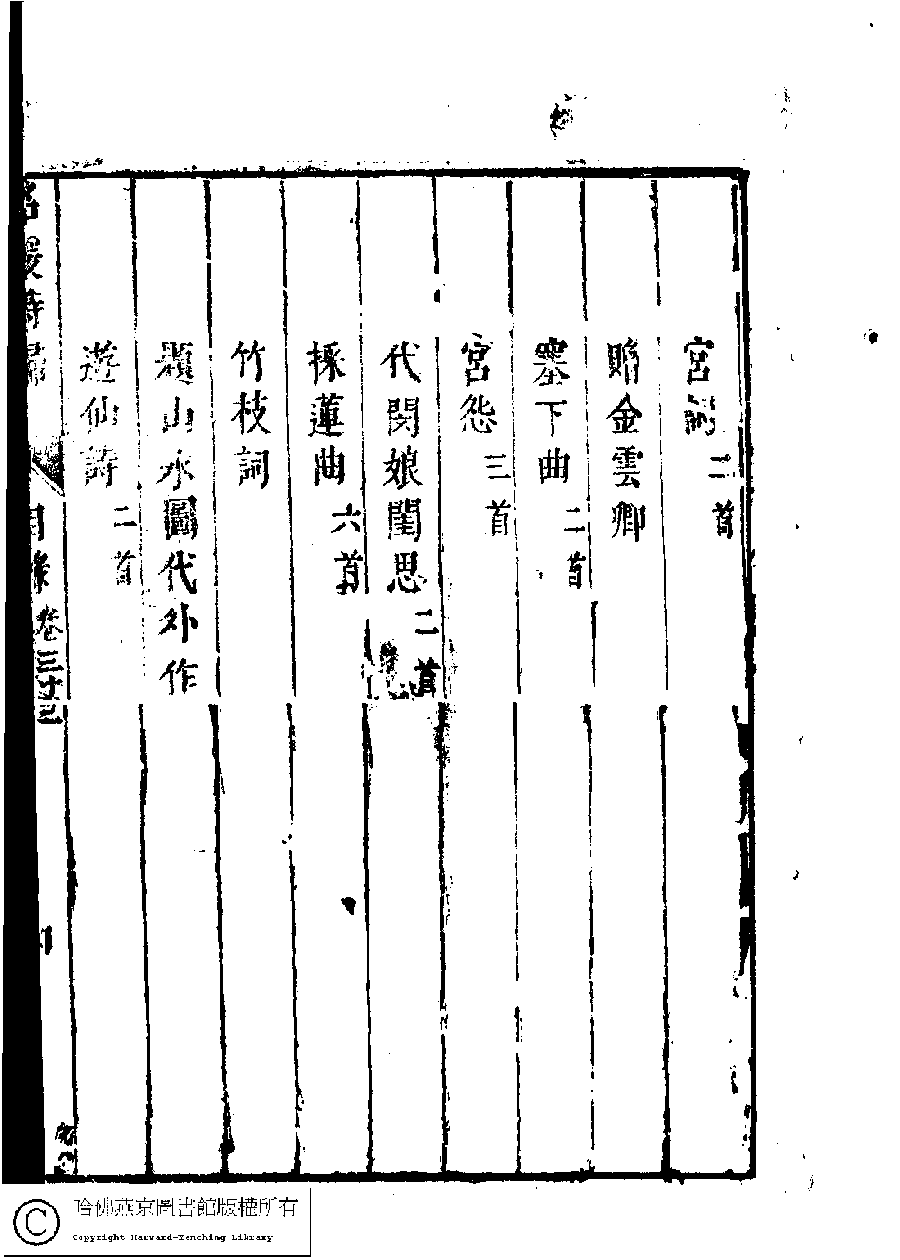 宮詞二首
贈金雲卿
塞下曲二首
宮怨三首
代閔娘閨思二首
採蓮曲六首
竹枝詞
題山水圖代外作
遊仙詩二首
名媛詩歸 目錄卷三十三
哈佛燕京圖書館版權所有
Copyright Harvard-Yenching Library